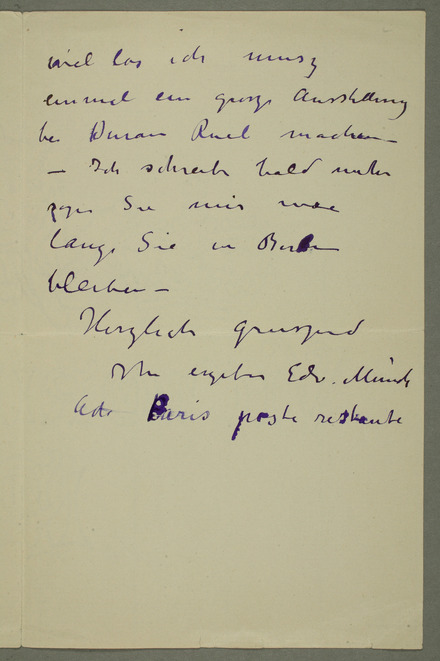 viel los ich musz
einmal ein grosze Ausstellung
bei Duran Ruel machen
— Ich schreibe bald weiter
Sie mir wie
lange Sie in Berlin
bleiben —
Herzlich grüszend
Ihr ergeben Edv. Munch
Adr Paris poste restante